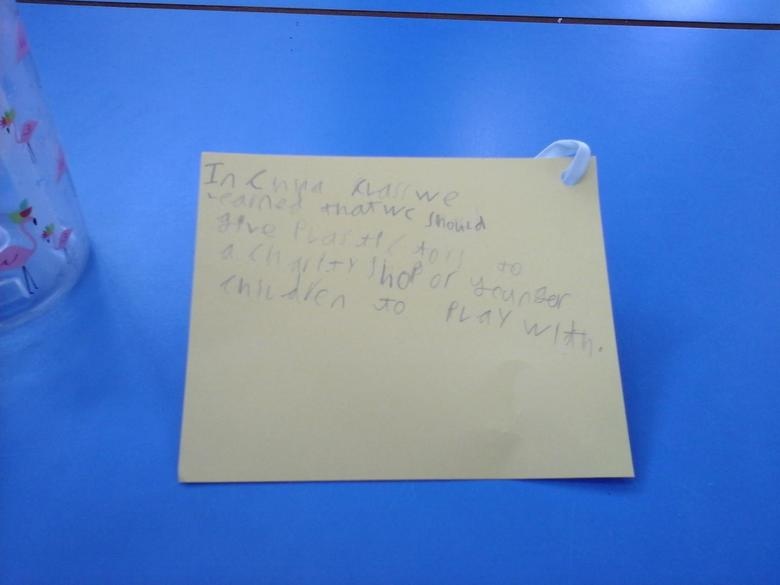 In China class we
learned that we should
give Plastic toys to
a charity shop or younger
children to PLAY with.